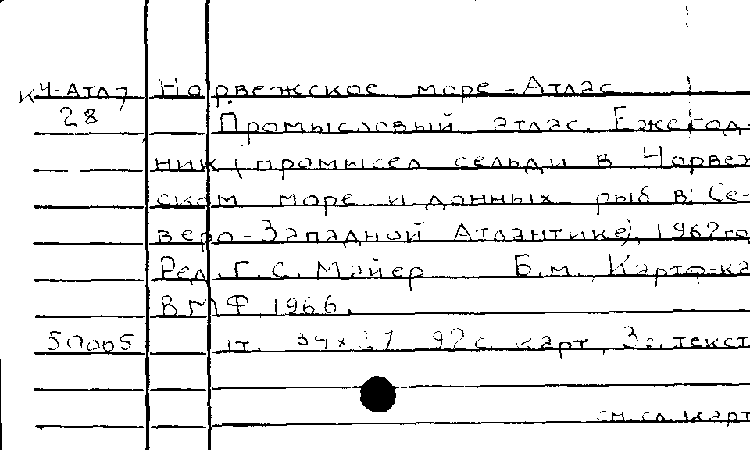 КЧ-Атл7 Норвежское море - Атлас
28 Промысловый атлас. Ежегод-
ник (промысел сельди в Норвеж
ском море и донных рыб в Се-
веро-Западной Атлантике), 1962го
Ред. Г.С. Майер Б.м., Карто-ка
ВМФ 1966.
50005 1т. 34х27 92 с. карт, 3 с. текст
см. сл. карт